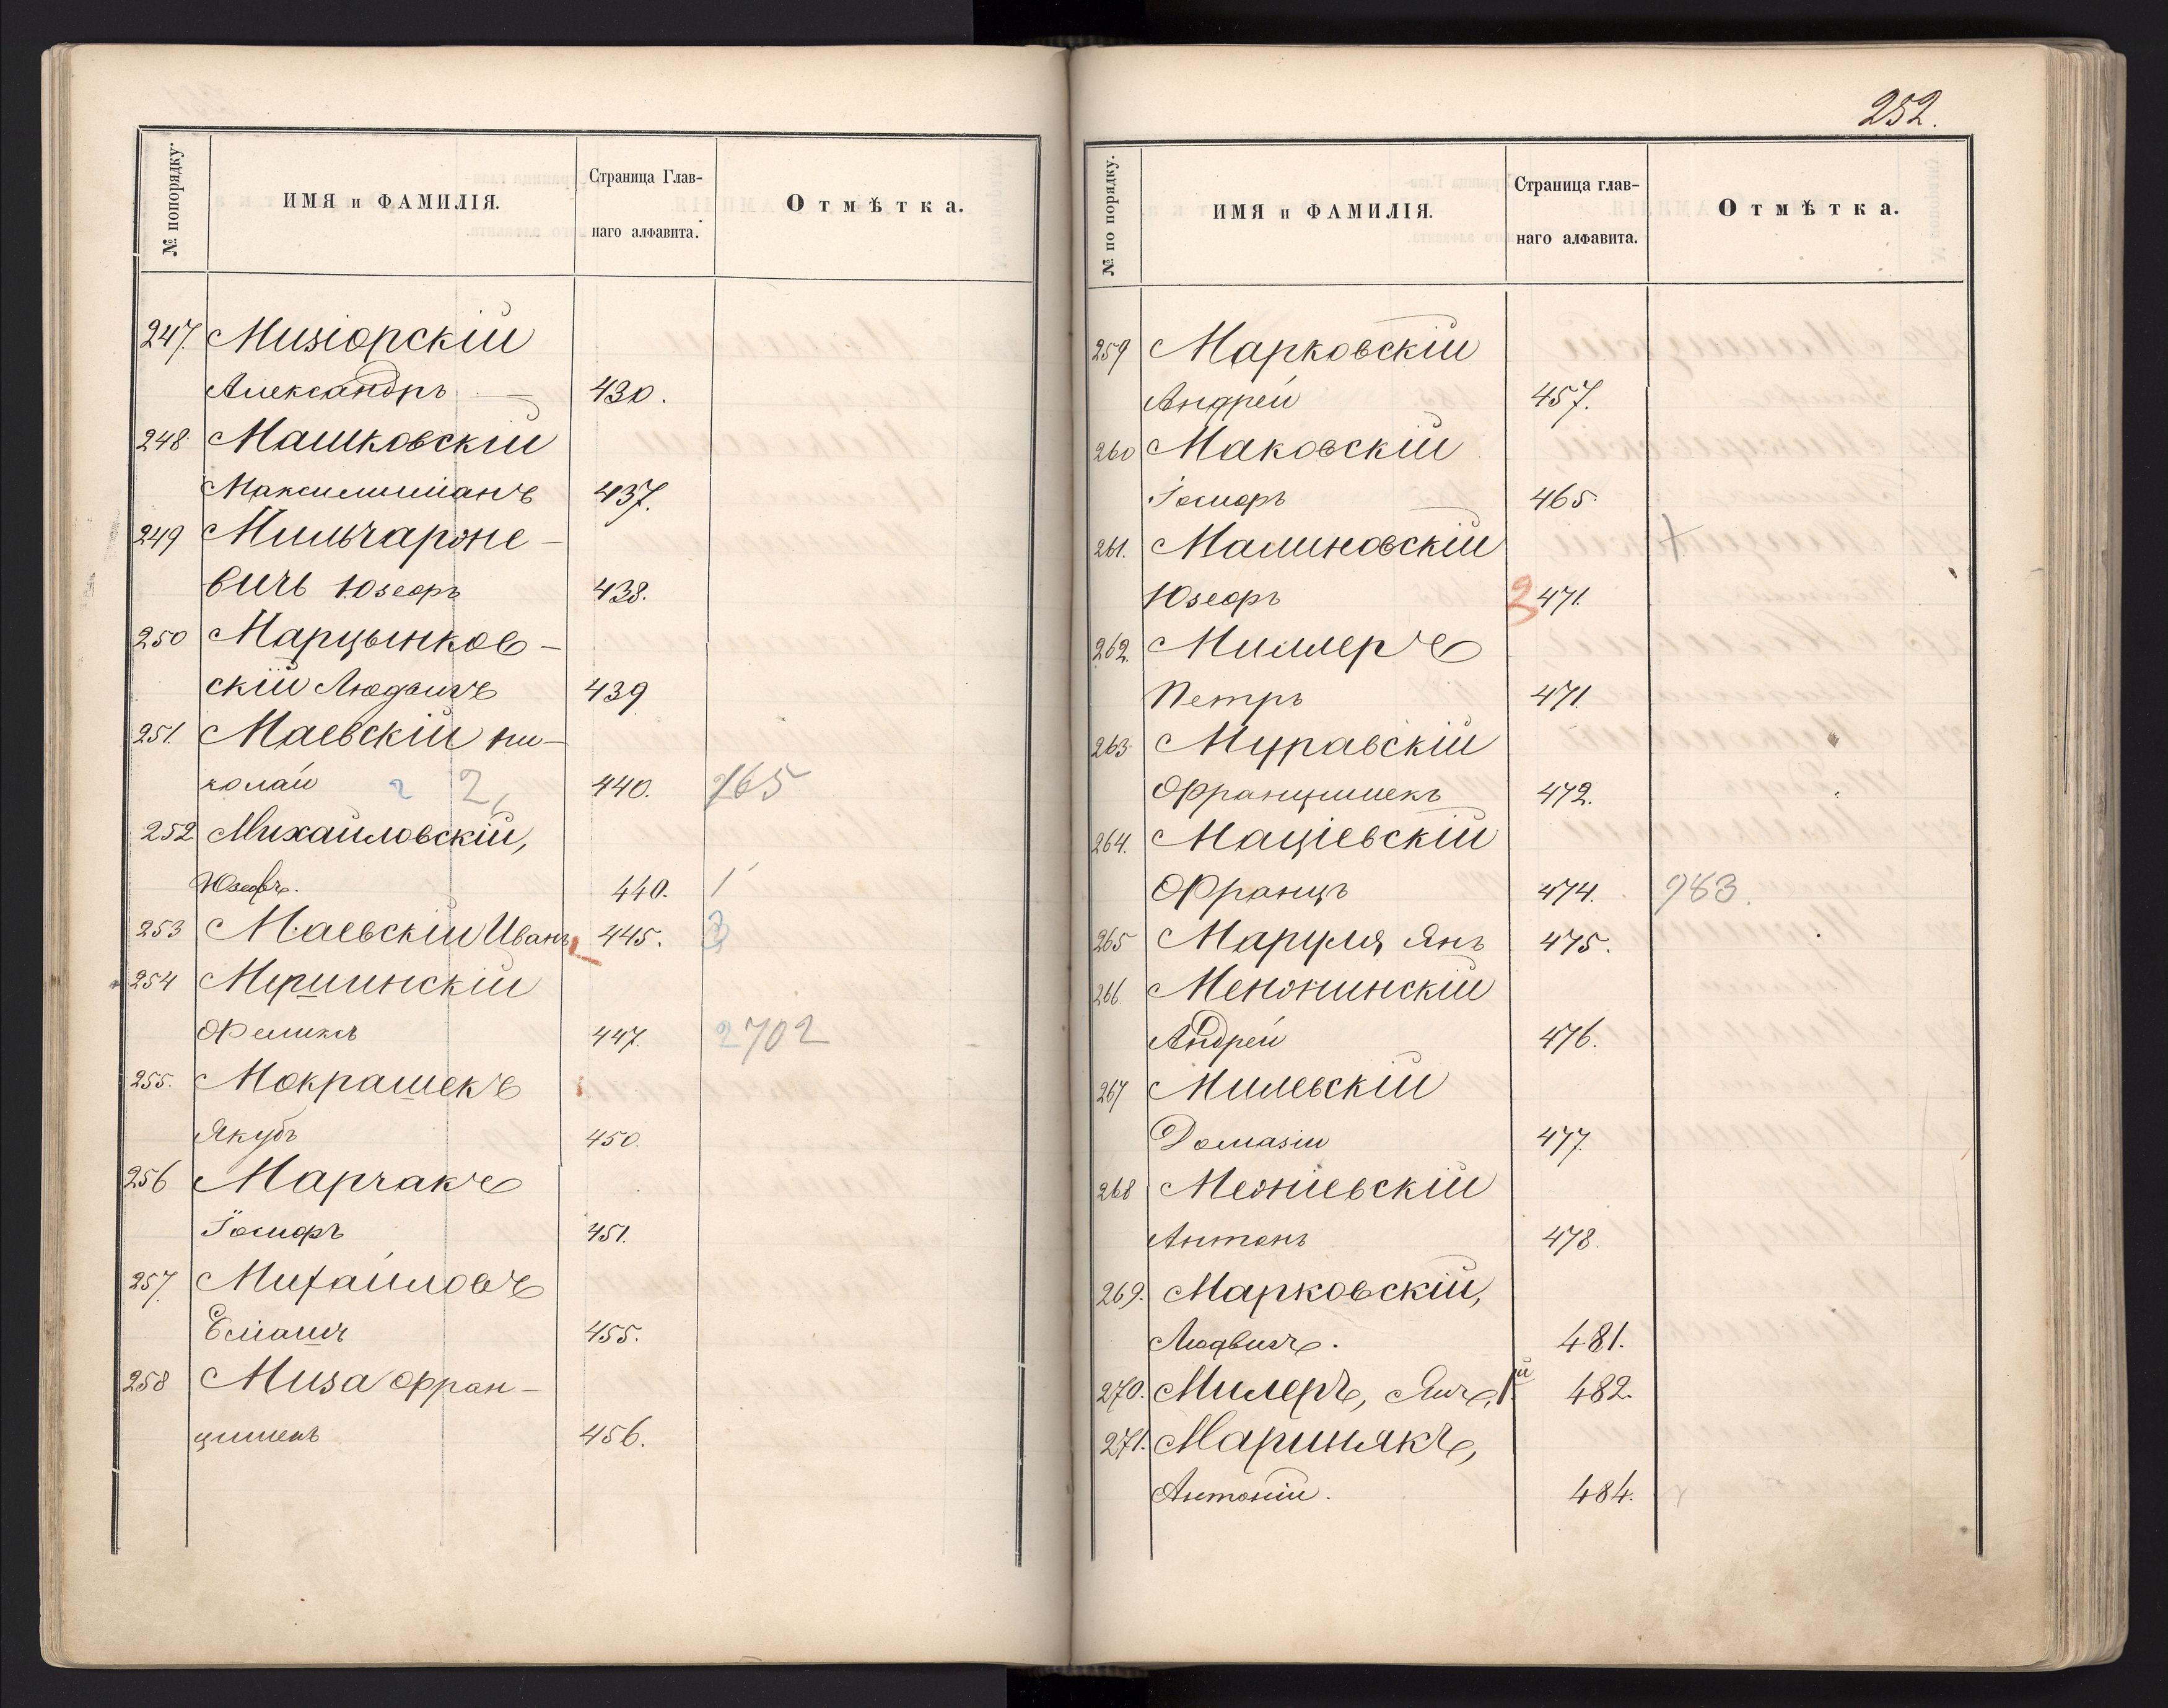 № попорядку.
ИМЯ и ФАМИЛІЯ.
Страница Глав-
наго алфавита.
Отмѣтка.
247. Мизіорскій
Александръ 430.
248. Машковскій
Максимиліанъ 437.
249 Мильчароне-
вичь Юзефъ 438.
250 Марцынков-
скій Людвигъ 439
251. Маевскій Ни-
колай 2 2 440. 265
252 Михайловскій,
Юзефъ. 440. 1
253 Маевскій Иванъ 445. 3
254 Мршинскій
Феликсъ 447. 2702
255. Мокрашекъ
Якубъ 450.
256 Марчакъ
Іосифъ 451.
257. Михайловъ
455.
258 Миза Фран-
цишекъ 456.
252.
№ по порядку.
ИМЯ и ФАМИЛІЯ.
Страница глав-
наго алфавита.
Отмѣтка.
259 Марковскій
Андрей 457.
260 Маковскій
Іосифъ 465.
261. Малиновскій
Юзефъ 2 471.
262. Миллеръ
Петръ 471.
263. Муравскій
Францишекъ 472.
264. Маціевскій
Францъ 474. 983.
265 Маруля Янъ 475.
266. Менжинскій
Андрей 476.
267 Милевскій
477.
268 Межіевскій
Антонъ 478.
269. Марковскій,
Людвигъ. 481.
270. Милеръ, Янъ, 1й 482.
271. Маринякъ,
Антоній. 484.